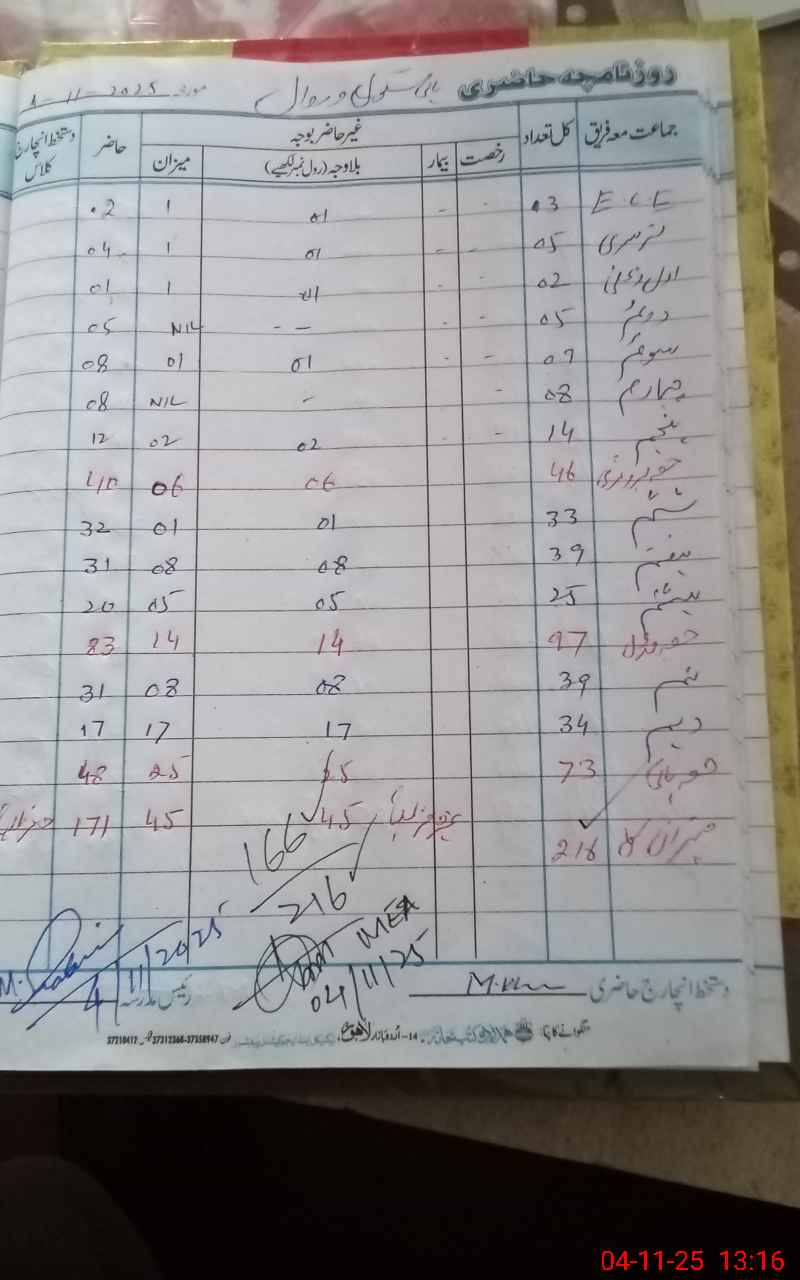 روزنامچہ حاضری ہائی سکول مورخہ 4-11-2025
جماعت معہ فریق کل تعداد غیر حاضر بوجہ حاضر دستخط انچارج کلاس
رخصت بیمار بلاوجہ (رول نمبر لکھیے) میزان
ECE 03 - - 01 1 02
نرسری 05 - - 01 1 04
02 - - 01 1 01
دوئم 05 - - -- NIL 05
سوئم 09 - - 01 01 08
چہارم 08 - - NIL 08
پنجم 14 - - 02 02 12
46 06 06 40
ششم 33 01 01 32
ہفتم 39 08 08 31
ہشتم 25 05 05 20
97 14 14 83
نہم 39 08 08 31
دہم 34 17 17 17
73 25 25 48
میزان کل 216 45 45 171
166
216
MEA
04/11/25
4/11/2025
دستخط انچارج حاضری رئیس مدرسہ
منگوانے کا پتہ: 14-اُردو بازار لاہور۔ فون 37358947-37312368 37210412
04-11-25 13:16